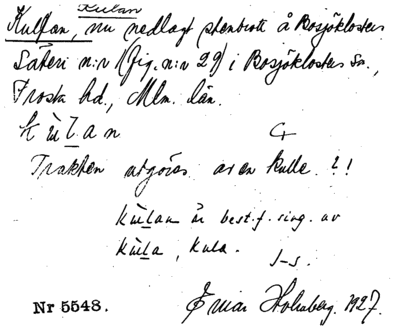 Kulan
Kullan, nu nedlagt stenbrott å Bosjöklosters
Säteri n:r 1 (fig. n:r 29) i Bosjöklosters sn.,
Frosta hd., Mlm. län.
kùlan
Trakten utgöres av en kulle. ? !
kùlan är best. f. sing. av
kùla, kula.
J-s.
Nr 5548. Einar Holmberg. 1927.